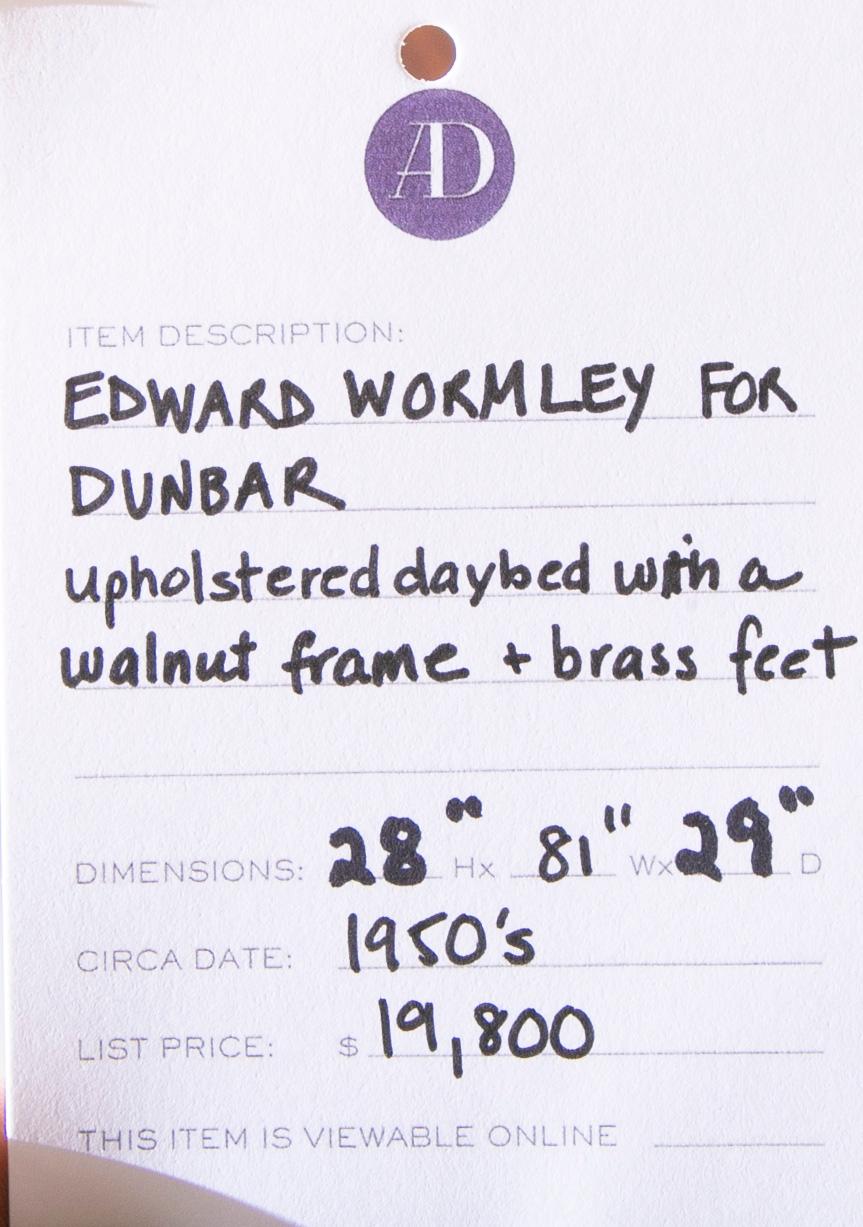 AD
ITEM DESCRIPTION:
EDWARD WORMLEY FOR
DUNBAR
upholstered daybed with a
walnut frame + brass feet
DIMENSIONS: 28" Hx 81" Wx 29" D
CIRCA DATE: 1950's
LIST PRICE: $ 19,800
THIS ITEM IS VIEWABLE ONLINE